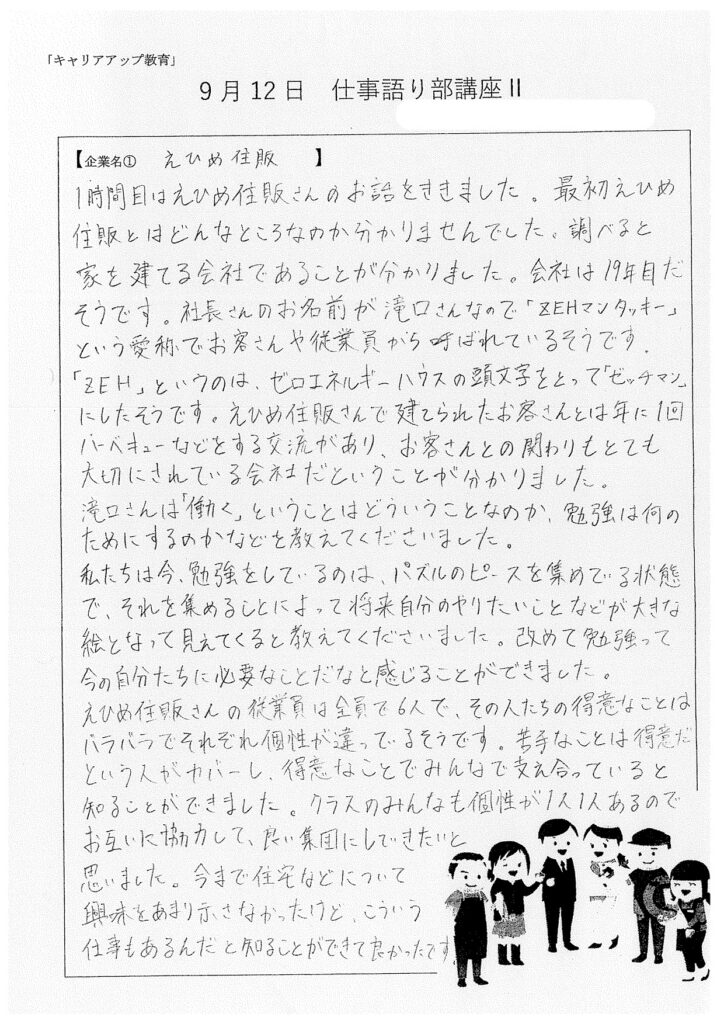 「キャリアアップ教育」
9月12日　仕事語り部講座Ⅱ
【企業名① えひめ住販 】
1時間目はえひめ住販さんのお話をききました。最初えひめ
住販とはどんなところなのか分かりませんでした、調べると
家を建てる会社であることが分かりました。会社は19年目だ
そうです。社長さんのお名前が滝口さんなので「ZEHマンタッキー」
という愛称でお客さんや従業員から呼ばれているそうです。
「ZEH」というのは、ゼロエネルギーハウスの頭文字をとって「ゼッチマン」
にしたそうです。えひめ住販さんで建てられたお客さんとは年に1回
バーベキューなどをする交流があり、お客さんとの関わりもとても
大切にされている会社だということが分かりました。
滝口さんは「働く」ということはどういうことなのか、勉強は何の
ためにするのかなどを教えてくださいました。
私たちは今、勉強をしているのは、パズルのピースを集めている状態
で、それを集めることによって将来自分のやりたいことなどが大きな
絵となって見えてくると教えてくださいました。改めて勉強って
今の自分たちに必要なことだなと感じることができました。
えひめ住販さんの従業員は全員で6人で、その人たちの得意なことは
バラバラでそれぞれ個性が違っているそうです。苦手なことは得意だ
という人がカバーし、得意なことでみんなで支え合っていると
知ることができました。クラスのみんなも個性が1人1人あるので
お互いに協力して、良い集団にしできたいと
思いました。今まで住宅などについて
興味をあまり示さなかったけど、こういう
仕事もあるんだと知ることができて良かったです